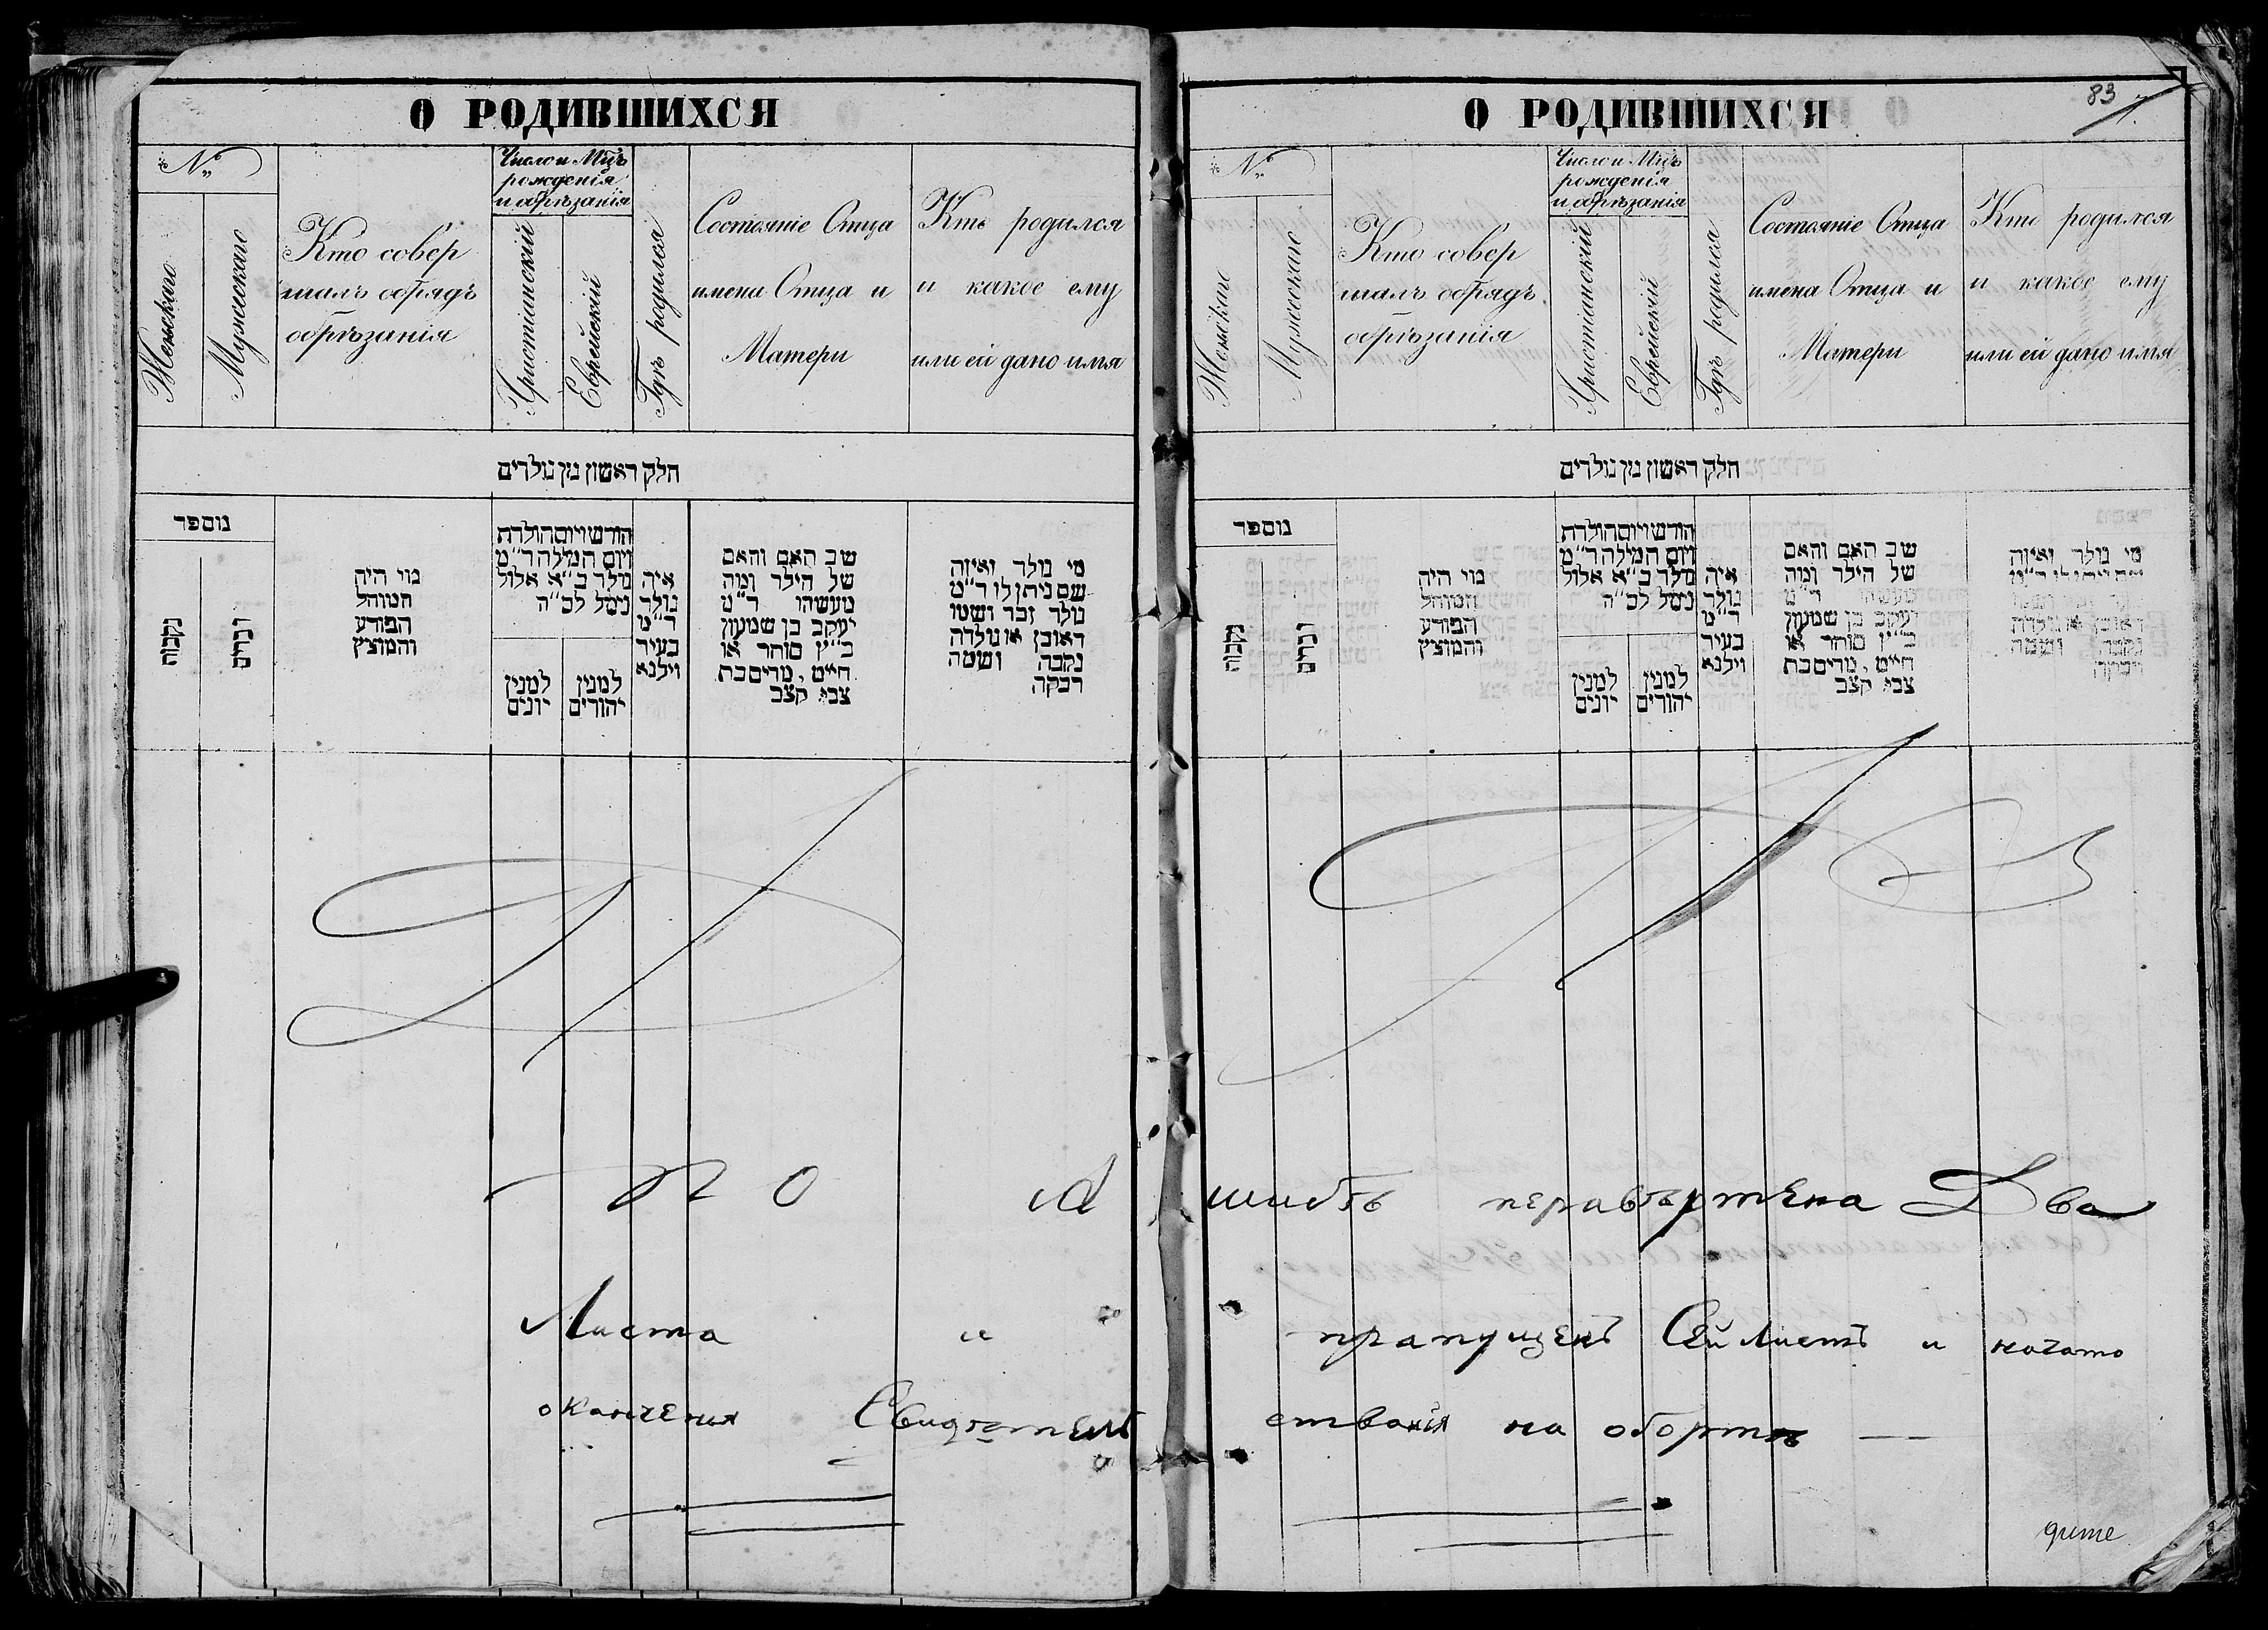 О РОДИВШИХСЯ
№
Женскаго
Мужескаго
Кто совер
шалъ обрядъ
обрѣзанія
Число и Мц҃ъ
рожденія
и обрѣзанія
Христіанскій
Еврейскій
Гдѣ родился
Состояніе Отца
имена Отца и
Матери
Кто родился
и какое ему
или ей дано имя
חלק ראשון מן נולדים
מספר
נקבות
זכרים
מי היה
המוהל
הפורע
והמוצץ
חודש ויום הולדת
ויום המילה ד״מ
נולד כ״א אלול
נימל לכ״ה
למנין
יונים
למנין
יהודים
איה
נולד
ד״מ
בעיר
וילנא
שב האם והאם
של הילד ומה
מעשהו ד״מ
יעקב בן שמעון
כ״ץ סוחר או
חייט, מרים בת
צבי קצב
מי נולד ואיזה
שם ניתן לו ד״מ
נולד זכר ושמו
ראובן או נולדה
נקבה ושמה
רבקה
О РОДИВШИХСЯ
83
№
Женскаго
Мужескаго
Кто совер
шалъ обрядъ
обрѣзанія
Число и Мц҃ъ
рожденія
и обрѣзанія
Христіанскій
Еврейскій
Гдѣ родился
Состояніе Отца
имена Отца и
Матери
Кто родился
и какое ему
или ей дано имя
חלק ראשון מן נולדים
מספר
נקבות
זכרים
מי היה
המוהל
הפורע
והמוצץ
חודש ויום הולדת
ויום המילה ד״מ
נולד כ״א אלול
נימל לכ״ה
למנין
יונים
למנין
יהודים
איה
נולד
ד״מ
בעיר
וילנא
שב האם והאם
של הילד ומה
מעשהו ד״מ
יעקב בן שמעון
כ״ץ סוחר או
חייט, מרים בת
צבי קצב
מי נולד ואיזה
שם ניתן לו ד״מ
ראובן או נולדה
נקבה ושמה
רבקה
по о шибкѣ перавѣртена Два
Листа и прапущенъ Сей Листъ и начато
оканчения Свидѣтель ствания на обортѣ —
дите